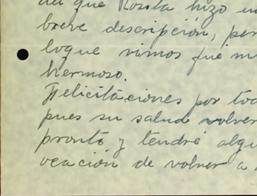 del que Rosita hizo un
breve descripción, per
loque vimos fué m
hermoso.
Felicitaciones por tod
pues su salud volver
pronto y tendré algu
ocación de volver a